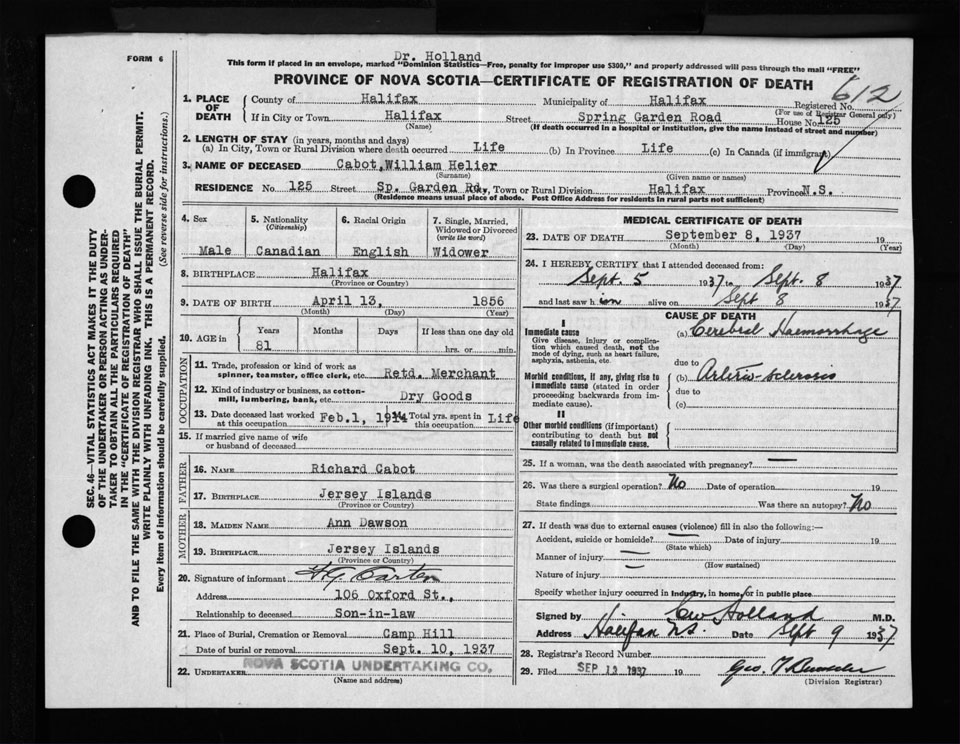 FORM 6
Dr. Holland
This form if placed in an envelope, marked "Dominion Statistics—Free, penalty for improper use $300," and properly addressed will pass through the mail "FREE"
PROVINCE OF NOVA SCOTIA—CERTIFICATE OF REGISTRATION OF DEATH
612
1. PLACE OF DEATH
County of Halifax Municipality of Halifax Registered No.
(For use of Registrar General only)
If in City or Town Halifax Street Spring Garden Road House No. 125
(Name) (If death occurred in a hospital or institution, give the name instead of street and number)
2. LENGTH OF STAY (in years, months and days)
(a) In City, Town or Rural Division where death occurred Life (b) In Province Life (c) In Canada (if immigrant)
3. NAME OF DECEASED Cabot, William Helier
(Surname) (Given name or names)
RESIDENCE No. 125 Street Sp. Garden Rd., Town or Rural Division Halifax Province N.S.
(Residence means usual place of abode. Post Office Address for residents in rural parts not sufficient)
4. Sex 5. Nationality (Citizenship) 6. Racial Origin 7. Single, Married, Widowed or Divorced (write the word)
Male Canadian English Widower
8. BIRTHPLACE Halifax
(Province or Country)
9. DATE OF BIRTH April 13, 1856
(Month) (Day) (Year)
10. AGE in Years Months Days If less than one day old
81 hrs. or min.
OCCUPATION
11. Trade, profession or kind of work as spinner, teamster, office clerk, etc. Retd. Merchant
12. Kind of industry or business, as cotton-mill, lumbering, bank, etc. Dry Goods
13. Date deceased last worked at this occupation Feb.1, 1914 14. Total yrs. spent in this occupation Life
15. If married give name of wife or husband of deceased
FATHER
16. NAME Richard Cabot
17. BIRTHPLACE Jersey Islands
(Province or Country)
MOTHER
18. MAIDEN NAME Ann Dawson
19. BIRTHPLACE Jersey Islands
(Province or Country)
20. Signature of informant
Address 106 Oxford St.,
Relationship to deceased Son-in-law
21. Place of Burial, Cremation or Removal Camp Hill
Date of burial or removal Sept. 10, 1937
22. UNDERTAKER NOVA SCOTIA UNDERTAKING CO.
(Name and address)
MEDICAL CERTIFICATE OF DEATH
23. DATE OF DEATH September 8, 1937 19
(Month) (Day) (Year)
24. I HEREBY CERTIFY that I attended deceased from:
Sept. 5 1937 to Sept. 8 1937
and last saw him alive on Sept 8 1937
CAUSE OF DEATH
I
Immediate cause (a) Cerebral Haemorrhage
Give disease, injury or complication which caused death, not the mode of dying, such as heart failure, asphyxia, asthenia, etc.
due to
Morbid conditions, if any, giving rise to immediate cause (stated in order proceeding backwards from immediate cause).
(b) Arterio-sclerosis
due to
(c)
II
Other morbid conditions (if important) contributing to death but not causally related to immediate cause.
25. If a woman, was the death associated with pregnancy? —
26. Was there a surgical operation? No Date of operation 19
State findings Was there an autopsy? No
27. If death was due to external causes (violence) fill in also the following:—
Accident, suicide or homicide? — Date of injury 19
(State which)
Manner of injury —
(How sustained)
Nature of injury —
Specify whether injury occurred in Industry, in home, or in public place
Signed by CW Holland M.D.
Address Halifax N.S. Date Sept 9 1937
28. Registrar's Record Number
29. Filed SEP 13 1937 19
(Division Registrar)
SEC. 46—VITAL STATISTICS ACT MAKES IT THE DUTY
OF THE UNDERTAKER OR PERSON ACTING AS UNDER-
TAKER TO OBTAIN ALL THE PARTICULARS REQUIRED
IN THE "CERTIFICATE OF REGISTRATION OF DEATH"
AND TO FILE THE SAME WITH THE DIVISION REGISTRAR WHO SHALL ISSUE THE BURIAL PERMIT.
WRITE PLAINLY WITH UNFADING INK. THIS IS A PERMANENT RECORD.
Every item of information should be carefully supplied. (See reverse side for instructions.)